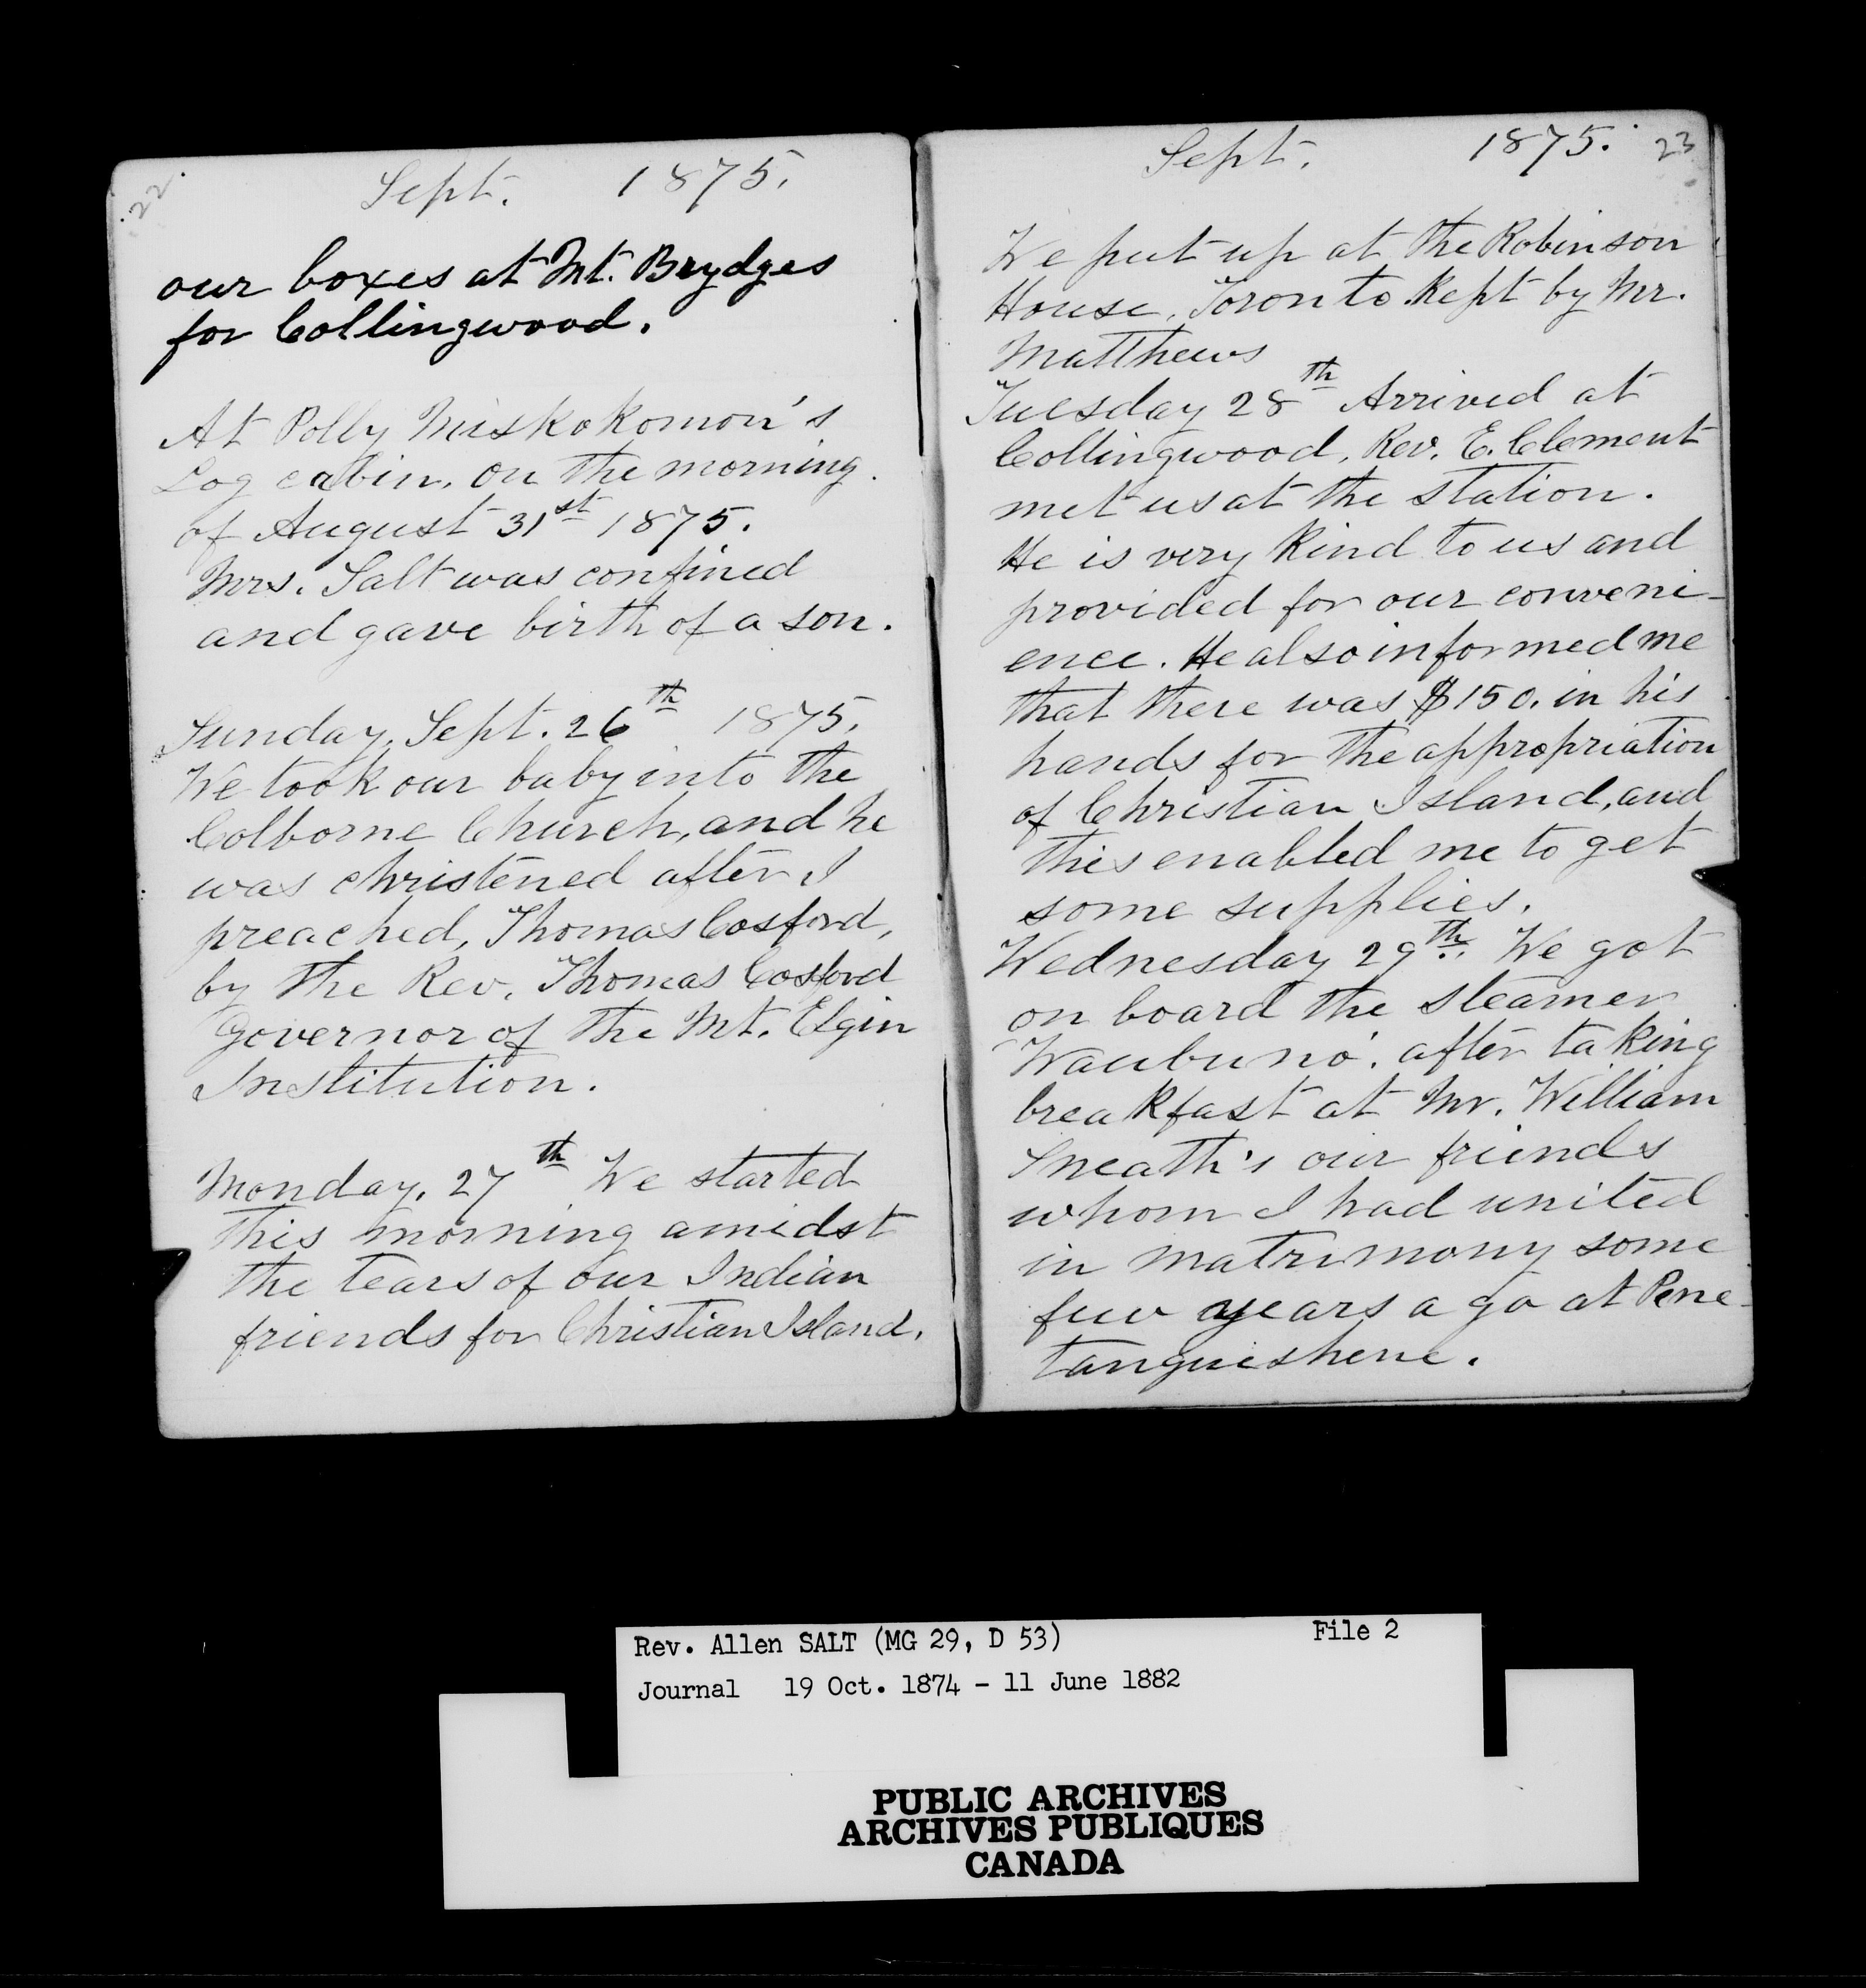 22
Sept. 1875.
our boxes at Mt. Brydges
for Collingwood.
At Polly Miskokomon's
Log cabin, on the morning
of August 31st 1875.
Mrs. Salt was confined
and gave birth of a son.
Sunday, Sept. 26th 1875.
We took our baby into the
Colborne Church, and he
was christened after I
preached, Thomas Cosford,
by the Rev. Thomas Cosford
Governor of the Mt. Elgin
Institution.
Monday, 27th We started
this morning amidst
the tears of our Indian
friends for Christian Island.
Sept. 1875. 23
We put up at the Robinson
House, Toronto kept by Mr.
Matthews
Tuesday 28th Arrived at
Collingwood, Rev. E. Clement
met us at the station.
He is very kind to us and
provided for our conveni-
ence. He also informed me
that there was $150. in his
hands for the appropriation
of Christian Island, and
this enabled me to get
some supplies.
Wednesday 29th. We got
on board the steamer
Waubuno. after taking
breakfast at Mr. William
Sneath's our friends
whom I had united
in matrimony some
few years ago at Pene-
tanguishene.
Rev. Allen SALT (MG 29, D 53) File 2
Journal 19 Oct. 1874 - 11 June 1882
PUBLIC ARCHIVES
ARCHIVES PUBLIQUES
CANADA